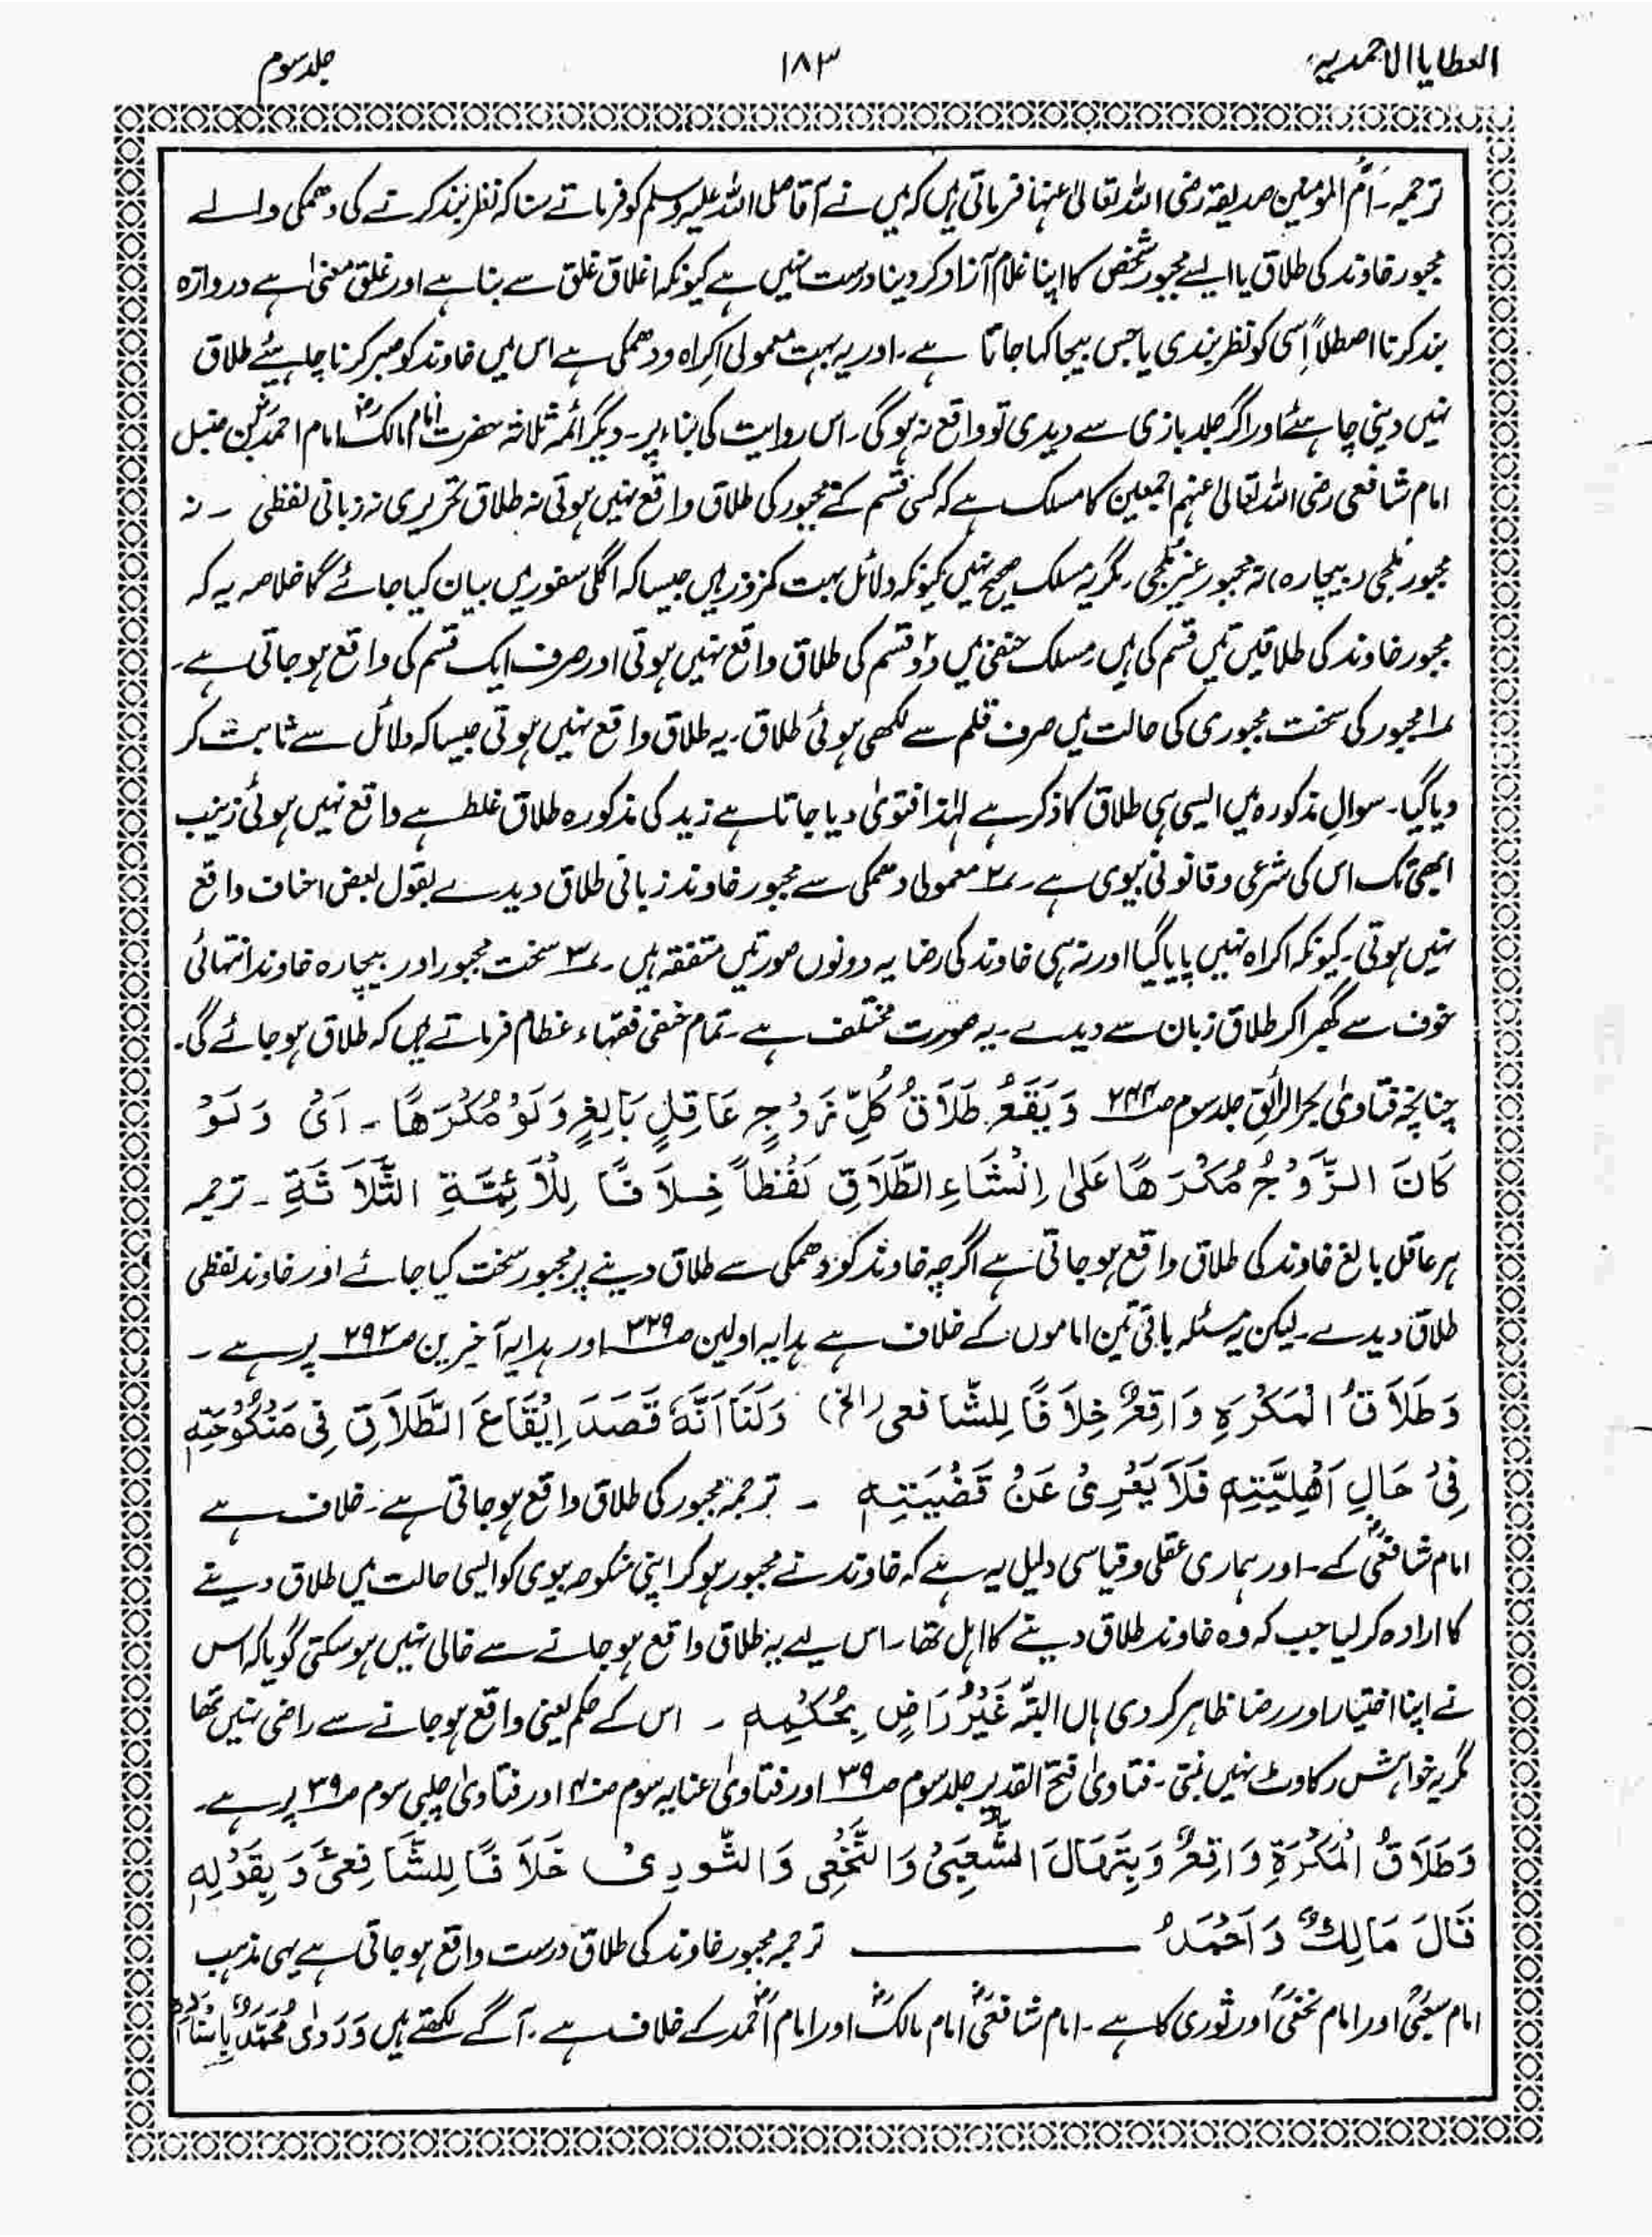 العطایا الاحمدیہ ۱۸۳ جلد سوم
ترجمہ۔ اُمّ المومنین صدیقہ رضی اللہ تعالیٰ عنہا فرماتی ہیں کہ میں نے آقا صلی اللہ علیہ وسلم کو فرماتے سنا کہ نظر بند کرنے کی دھمکی والے
مجبور خاوند کی طلاق یا ایسے مجبور شخص کا اپنا غلام آزاد کر دینا درست نہیں ہے کیونکہ اغلاق غلق سے بنا ہے اور غلق معنیٰ ہے دروازہ
بند کرنا اصطلاً اسی کو نظر بندی یا حبس بیجا کہا جاتا ہے۔ اور یہ بہت معمولی اکراہ و دھمکی ہے اس میں خاوند کو صبر کرنا چاہیئے طلاق
نہیں دینی چاہئے اور اگر جلد بازی سے دیدی تو واقع نہ ہوگی۔ اس روایت کی بناء پر۔ دیگر ائمہ ثلاثہ حضرت امام مالکؓ امام احمدؓ بن حنبل
امام شافعی رضی اللہ تعالیٰ عنہم اجمعین کا مسلک ہے کہ کسی قسم کے مجبور کی طلاق واقع نہیں ہوتی نہ طلاق تحریری نہ زبانی لفظی ۔ نہ
مجبور مُلجی (بیچارہ) نہ مجبور غیر مُلجی۔ مگر یہ مسلک صحیح نہیں کیونکہ دلائل بہت کمزور ہیں جیسا کہ اگلی سطور میں بیان کیا جائے گا خلاصہ یہ کہ
مجبور خاوند کی طلاقیں تین قسم کی ہیں۔ مسلک حنفی میں دو۲ قسم کی طلاق واقع نہیں ہوتی اور صرف ایک قسم کی واقع ہو جاتی ہے۔
۱؎ مجبور کی سخت مجبوری کی حالت میں صرف قلم سے لکھی ہوئی طلاق۔ یہ طلاق واقع نہیں ہوتی جیسا کہ دلائل سے ثابت کر
دیا گیا۔ سوال مذکورہ میں ایسی ہی طلاق کا ذکر ہے لہٰذا فتویٰ دیا جاتا ہے زید کی مذکورہ طلاق غلط ہے واقع نہیں ہوئی زینب
ابھی تک اس کی شرعی و قانونی بیوی ہے۔ ۲؎ معمولی دھمکی سے مجبور خاوند زبانی طلاق دیدے بقول بعض احناف واقع
نہیں ہوتی۔ کیونکہ اکراہ نہیں پایا گیا اور نہ ہی خاوند کی رضا یہ دونوں صورتیں متفقہ ہیں۔ ۳؎ سخت مجبور اور بیچارہ خاوند انتہائی
خوف سے گھبرا کر طلاق زبان سے دیدے۔ یہ صورت مختلف ہے۔ تمام حنفی فقہاء عظام فرماتے ہیں کہ طلاق ہو جائے گی۔
چنانچہ فتاویٰ بحر الرائق جلد سوم صـ۲۴۴ وَيَقَعُ طَلَاقُ كُلِّ زَوْجٍ عَاقِلٍ بَالِغٍ وَلَوْ مُكْرَهًا۔ اَىْ وَلَوْ
كَانَ الزَّوْجُ مُكْرَهًا عَلىٰ اِنْشَاءِ الطَّلَاقِ لَفْظاً خِلَافًا لِلْاَئِمَّةِ الثَّلَاثَةِ۔ ترجمہ
ہر عاقل بالغ خاوند کی طلاق واقع ہو جاتی ہے اگرچہ خاوند کو دھمکی سے طلاق دینے پر مجبور سخت کیا جائے اور خاوند لفظی
طلاق دیدے۔ لیکن یہ مسئلہ باقی تین اماموں کے خلاف ہے ہدایہ اولین صـ۳۳۹ اور ہدایہ آخیرین صـ۲۹۲ پر ہے۔
وَطَلَاقُ الْمَكْرَهِ وَاقِعٌ خِلَافًا لِلشَّافعى (الخ) وَلَنَا اَنَّهٗ قَصَدَ اِيْقَاعَ الطَّلَاقِ فِى مَنْكُوْحَتِهٖ
فِىْ حَالِ اَهْلِيَّتِهٖ فَلَا يَعْرِىْ عَنْ قَضْيَتِهٖ ۔ ترجمہ مجبور کی طلاق واقع ہو جاتی ہے۔ خلاف ہے
امام شافعیؒ کے۔ اور ہماری عقلی و قیاسی دلیل یہ ہے کہ خاوند نے مجبور ہو کر اپنی منکوحہ بیوی کو ایسی حالت میں طلاق دینے
کا ارادہ کر لیا جب کہ وہ خاوند طلاق دینے کا اہل تھا۔ اس لیے یہ طلاق واقع ہو جانے سے خالی نہیں ہو سکتی گویا کہ اس
نے اپنا اختیار اور رضا ظاہر کر دی ہاں البتّہ غَيْرُ رَاضٍ بِحُكْمِهٖ ۔ اس کے حکم یعنی واقع ہو جانے سے راضی نہیں تھا
مگر یہ خواہش رکاوٹ نہیں بنتی۔ فتاویٰ فتح القدیر جلد سوم صـ۳۹ اور فتاویٰ عنایہ سوم صـ۴۰ اور فتاویٰ چلپی سوم صـ۳۹ پر ہے۔
وَطَلَاقُ الْمَكْرَةِ وَاقِعٌ وَبِتَهٖ قَالَ الشَّعْبَىُ وَالنَّخْعِى وَالثَّوْرِىْ خَلَافًا لِلشَّافِعِىِّ وَبِقَوْلِهٖ
قَالَ مَالِكٌ وَاَحْمَدُ ــــــــ ترجمہ مجبور خاوند کی طلاق درست واقع ہو جاتی ہے یہی مذہب
امام سعبیؒ اور امام نخفیؒ اور ثوری کا ہے۔ امام شافعیؓ امام مالکؓ اور امام احمدؓ کے خلاف ہے۔ آگے لکھتے ہیں وَرَوىٰ مُحَمَّدٌ